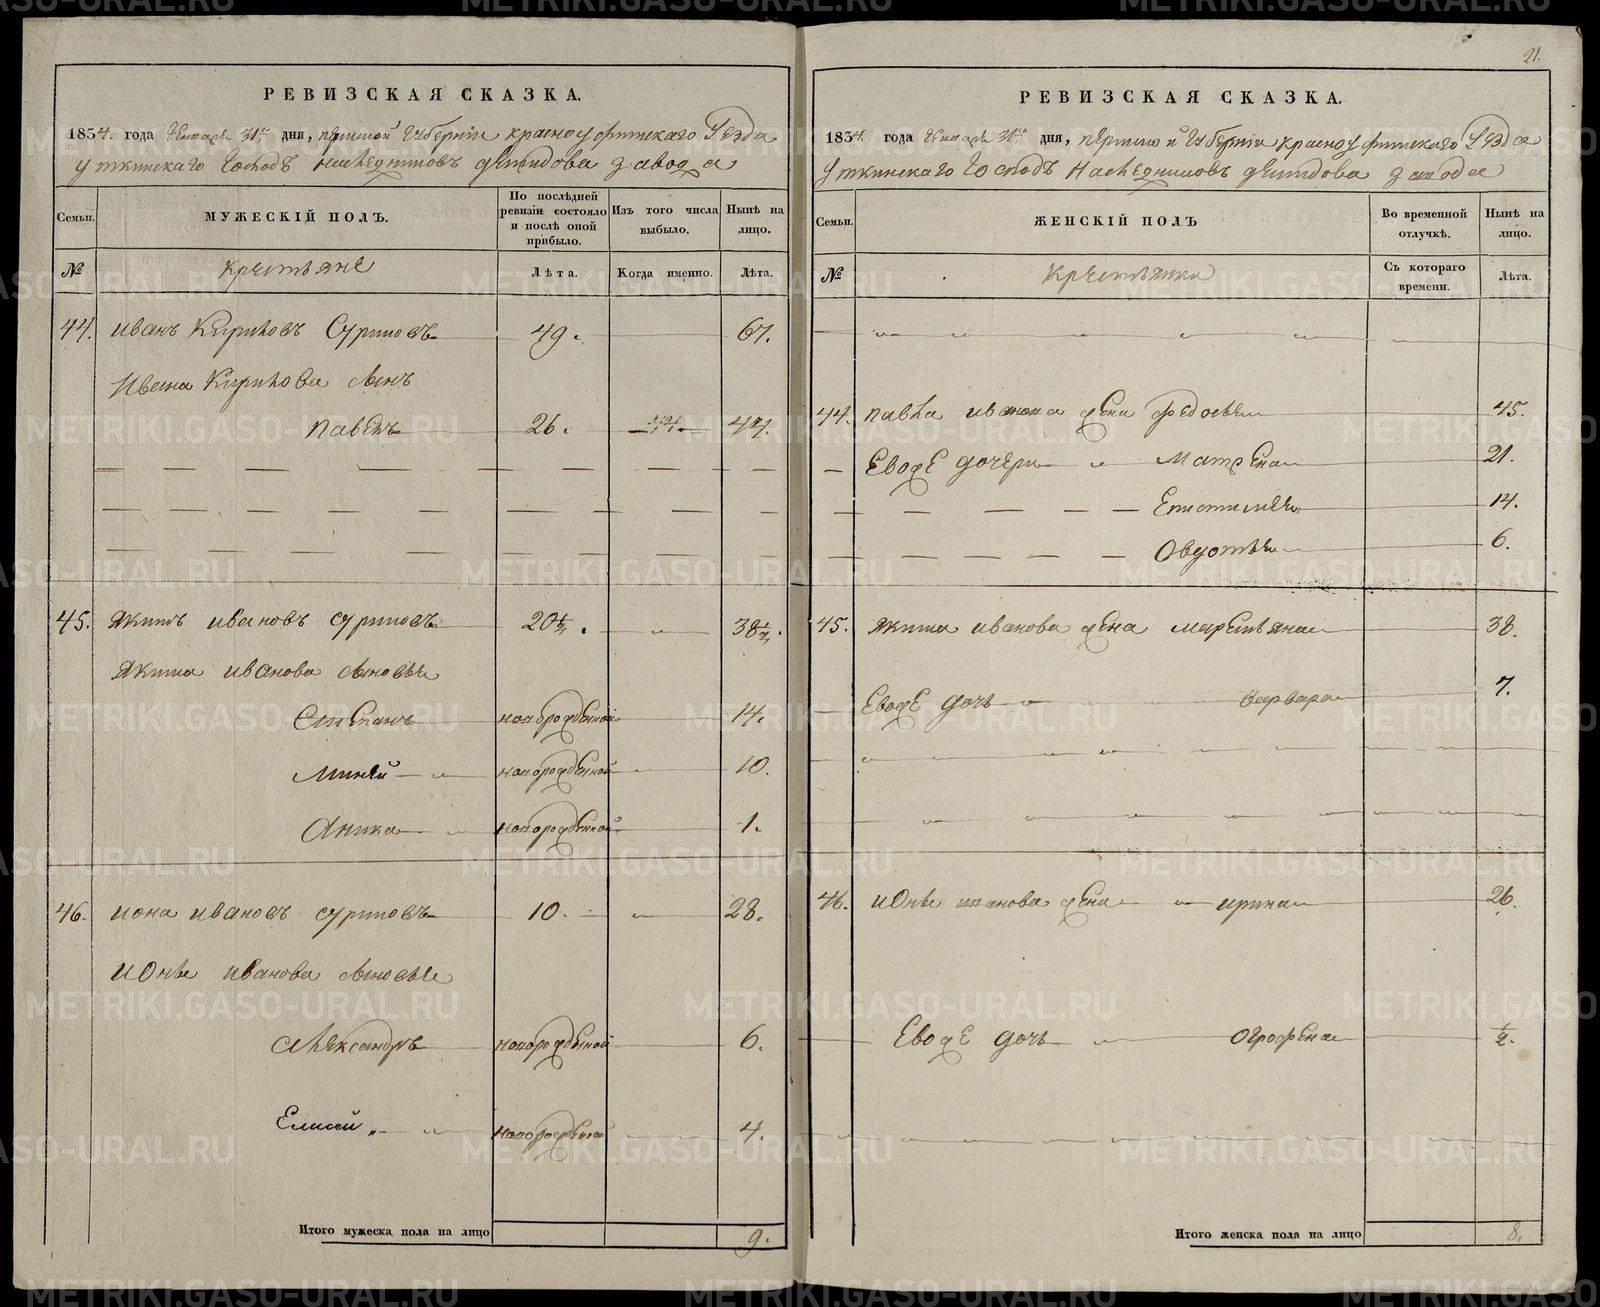 21.
РЕВИЗСКАЯ СКАЗКА.
1834. года Генваря 31го дня, пермской Губернiи красноуфимскаго Уезда
уткинскаго Господъ наследниковъ демидова завода
Семьи.
МУЖЕСКIЙ ПОЛЪ.
По послѣдней ревизiи состояло и послѣ оной прибыло.
Изъ того числа выбыло.
Нынѣ на лицо.
№
крестьяне
Лѣта.
Когда именно.
Лѣта.
44. иванъ Кириловъ Суриковъ 49. 67.
Ивана Кирилова сынъ
павелъ 26. 44.
45. якимъ ивановъ суриковъ 20½. 38½.
якима иванова сыновья
Степанъ новорожденной 14.
Миней новорожденной 10.
Аника новорожденной 1.
46. иона ивановъ суриковъ 10. 28.
ионы иванова сыновья
александръ новорожденной 6.
Елисей новорожденной 4.
Итого мужеска пола на лицо 9.
РЕВИЗСКАЯ СКАЗКА.
1834. года Генваря 31го дня, пермской Губернiи красноуфимскаго Уезда
уткинскаго Господъ Наследниковъ демидова завода
Семьи.
ЖЕНСКIЙ ПОЛЪ
Во временной отлучкѣ.
Нынѣ на лицо.
№
крестьянки
Съ котораго времени.
Лѣта.
44. павла иванова жена федосья 45.
Евоже дочери матрена 21.
Епистимья 14.
Овдотья 6.
45. якима иванова жена маремьяна 38.
Евоже дочь варвара 7.
46. ионы иванова жена ирина 26.
Евоже дочь огрофена ½.
Итого женска пола на лицо 8.
METRIKI.GASO-URAL.RU